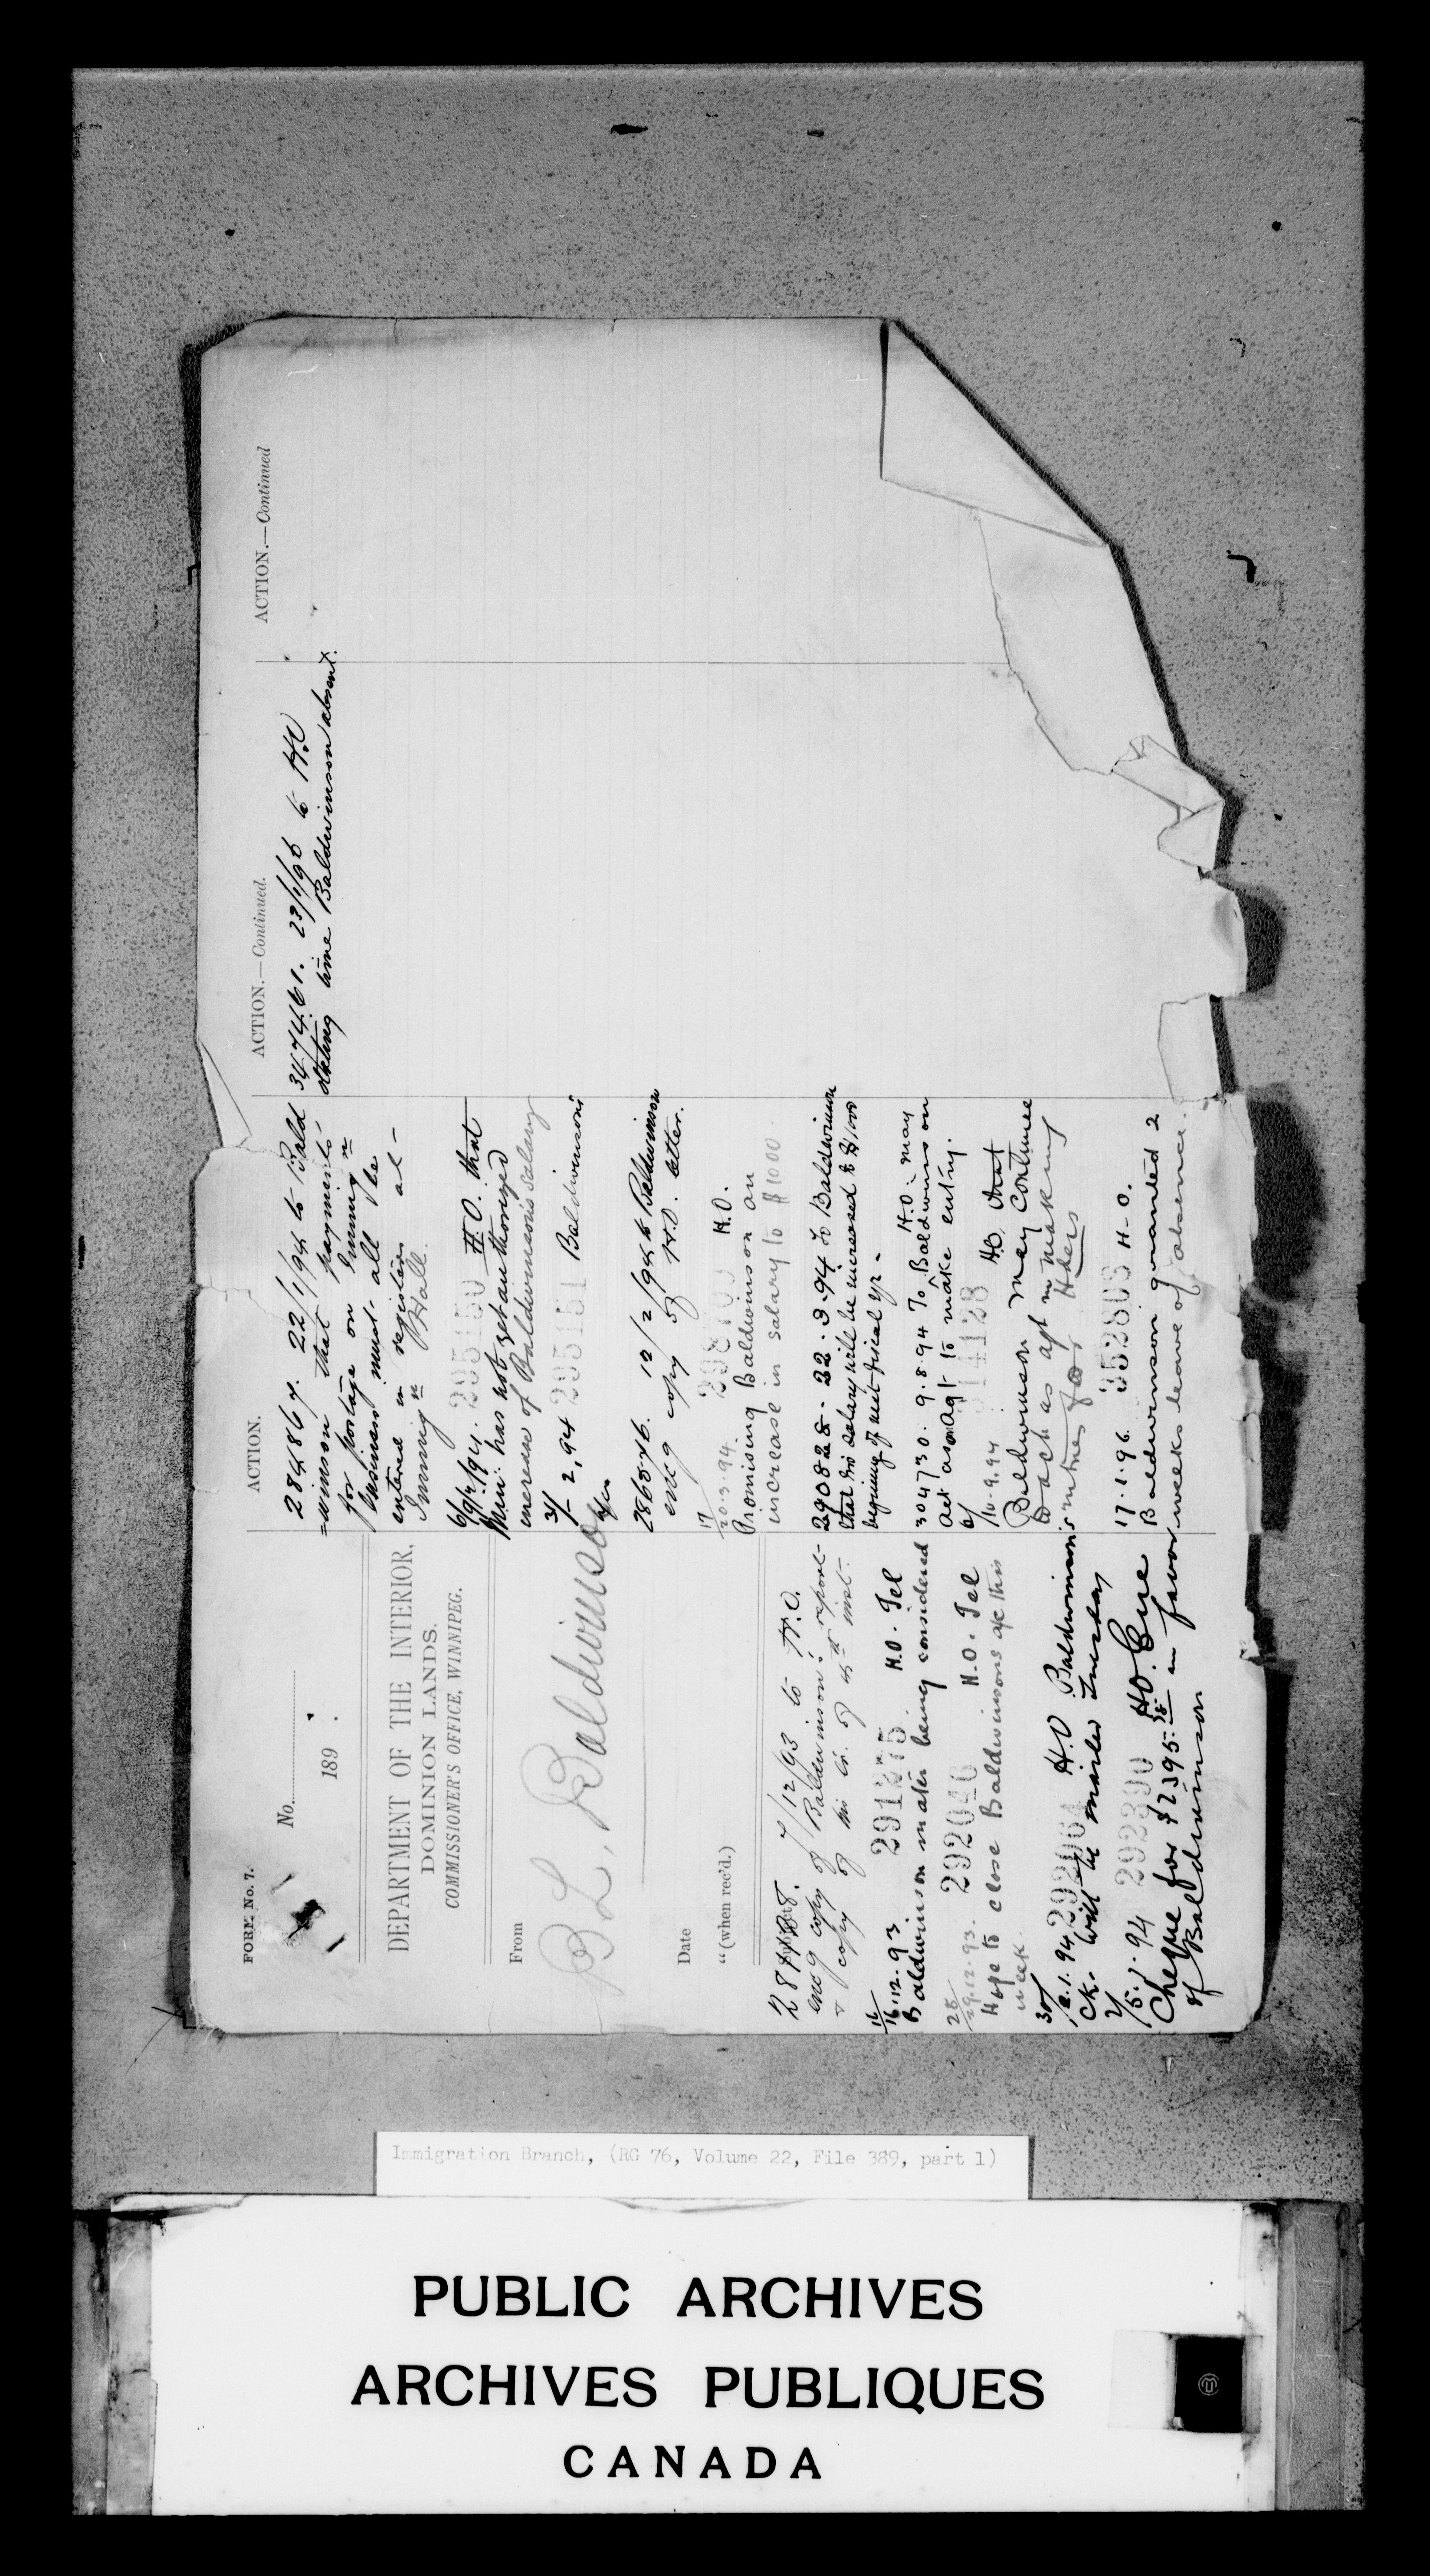 FORM No. 7.
No.
189 .
DEPARTMENT OF THE INTERIOR,
DOMINION LANDS.
COMMISSIONER'S OFFICE, WINNIPEG.
From
B L. Baldwinson
Date
" (when rec'd.)
7/12/93 to H.O.
encg copy of Baldwinson's report
& copy of his lr. of 4th inst-
16/16.12.93 291275 H.O. Tel
Baldwinson matter being considered
28/29.12.93. 292040 H.O. Tel
Hope to close Baldwinsons a/c this
week.
30/2.1.94 292064 H.O Baldwinson's
Ck. will be mailed Tuesday
2/5.1.94 292390 H.O. Enc
Cheque for $2395.18 in favor
of Baldwinson
ACTION.
284867. 22/1/94 to Bald
=winson that payments
for postage on Immgn
business must all be
entered in register at-
Immgn Hall.
6/9/2/94. 295150 H.O. that
Min: has not yet authorized
increase of Baldwinson's salary
3/ - 2,94 295151 Baldwinson's
286846. 12/2/94 to Baldwinson
encg copy of H.O. letter.
17/20.3.94. H.O.
Promising Baldwinson an
increase in salary to $1000.
290828- 22.3.94 to Baldwinson
that his salary will be increased to $1000
beginng of next fiscal yr-
304730. 9.8.94 To H.O. may
Baldwinson
act as agt to make entry.
6/10.9.94 314128 H.O. that
Baldwinson may continue
to act as agt in making
entries for Hders
17.1.96 352803 H-O.
Baldwinson granted 2
weeks leave of absence.
ACTION.—Continued.
347461. 23/1/96 to H.O
stating time Baldwinson absent.
ACTION.—Continued
Immigration Branch, (RG 76, Volume 22, File 389, part 1)
PUBLIC ARCHIVES
ARCHIVES PUBLIQUES
CANADA